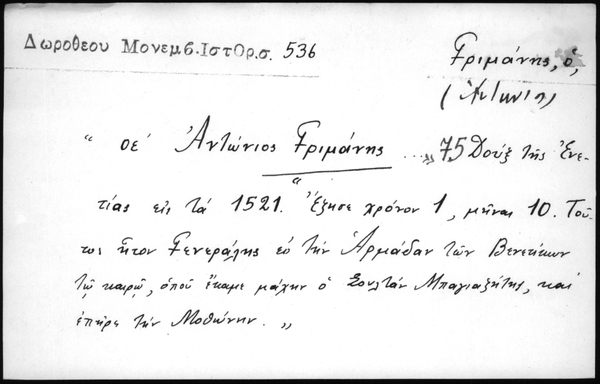 Δωροθεου Μονεμβ. Ιστορ. σ. 536
Γριμάνης, ὁ,
(Ἀντώνιος)
" οε´ Ἀντώνιος Γριμάνης ... 75 Δοὺξ τῆς Ἑνε-
τίας εἰς τά 1521. Ἔζησε χρόνον 1, μῆνας 10. Τοῦ-
τος ἦτον Γενεράλης εἰς τὴν Ἀρμάδαν τῶν Βενετίκων
τῷ καιρῷ, ὁποῦ ἔκαμε μάχην ὁ Σουλτάν Μπαγιαζήτης, καί
ἐπῆρε τὴν Μοθώνην. „